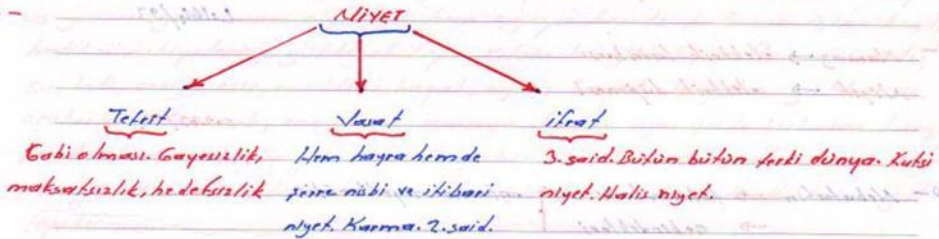 NİYET
Tefrit
Vasat
ifrat
Gabi olması. Gayesizlik,
maksatsızlık, hedefsizlik
Hem hayra hem de
şerre nisbi ve itibari
niyet. Karma. 2. said.
3. said. Bütün bütün terki dünya. Kutsi
niyet. Halis niyet.